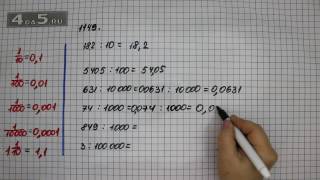 4АSИ
1149.
1/10 = 0,1
1/100 = 0,01
1/1000 = 0,001
1/10000 = 0,0001
1 1/10 = 1,1
182 : 10 = 18,2
5405 : 100 = 5405
631 : 10 000 = 00631 : 10 000 = 0,0631
74 : 1000 = 0,074 : 1000 = 0,0
849 : 1000 =
3 : 100 000 =